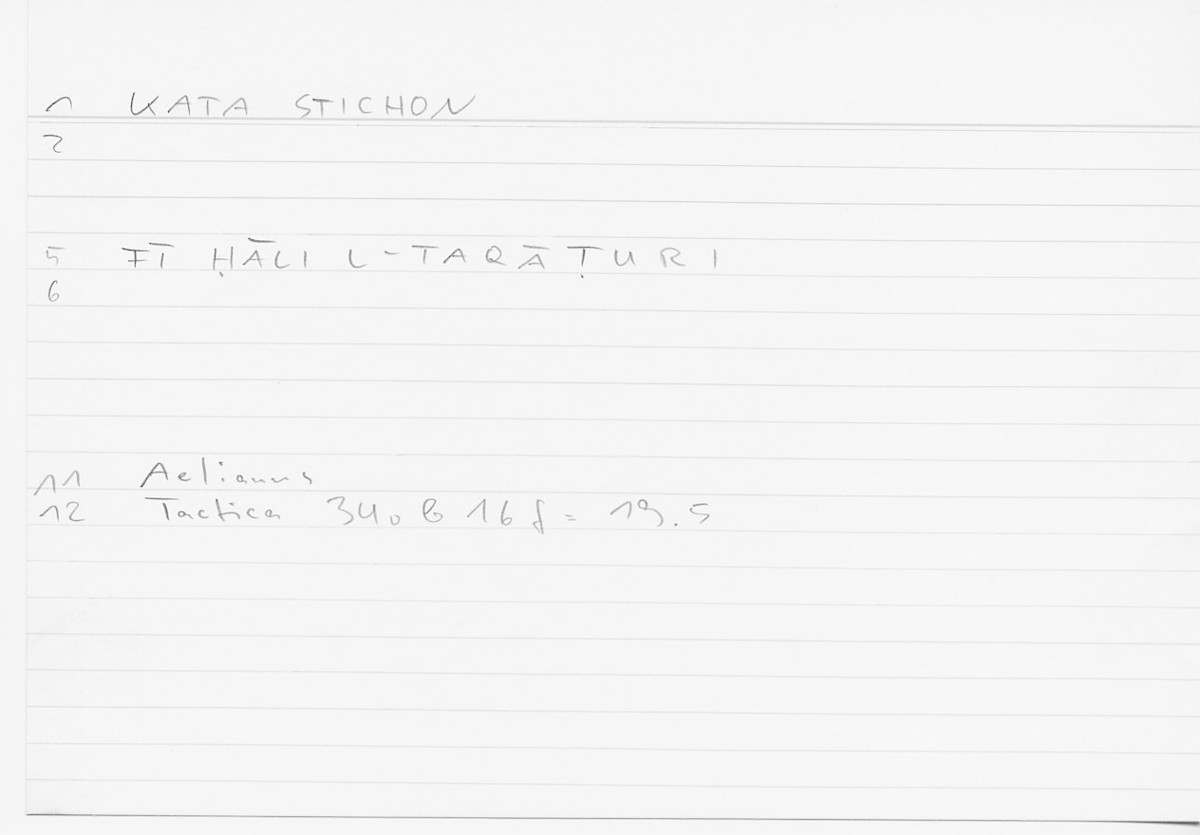 1 KATA STICHON
2
5 FĪ ḤĀLI L-TARĀṬURI
6
11 Aelianus
12 Tactica 34.6 16 f = 19.5